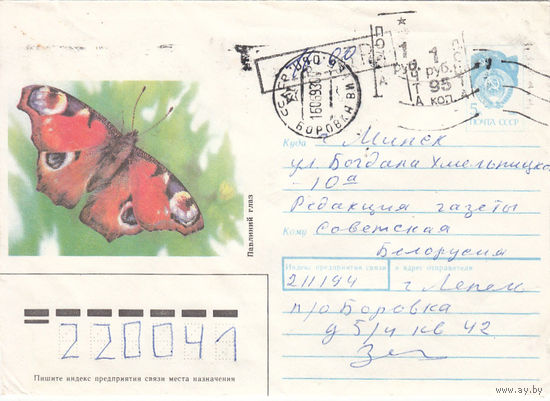 Павлиний глаз
БОРОВКИ ВИ
1 РУБ.
1 РУБ.
95 КОП.
5
ПОЧТА СССР
Куда г. Минск
ул. Богдана Хмельницкого
-10а
Редакция газеты
Кому Советская
Белорусия
Индекс предприятия связи и адрес отправителя
211194 г. Лепель
п/о Боровка
д 5/4 кв 42
220041
Пишите индекс предприятия связи места назначения
www.ay.by